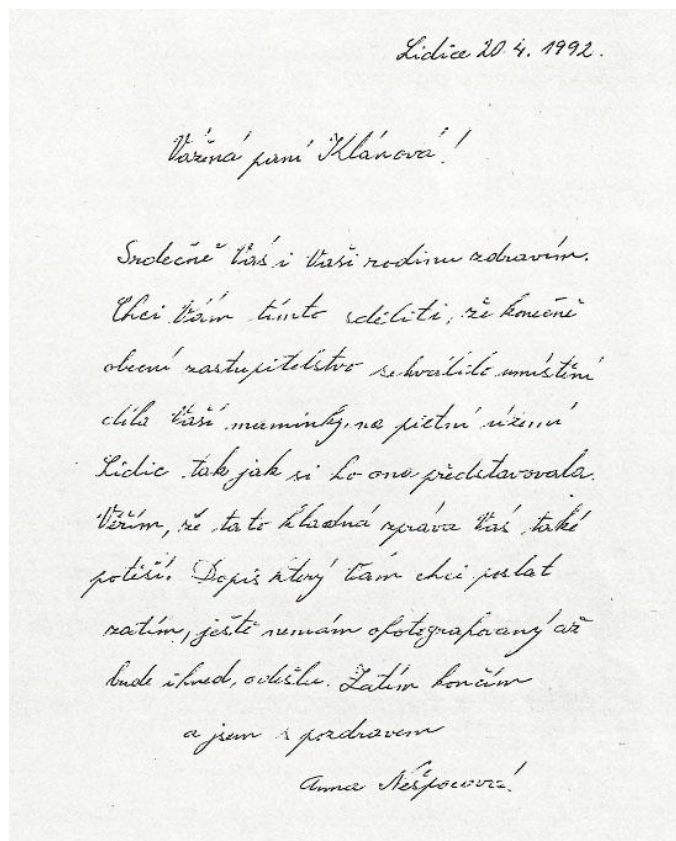 Lidice 20. 4. 1992.
Vážená paní Klánová!
Srdečně Vás i Vaši rodinu zdravím.
Chci Vám tímto sděliti, že konečně
obecní zastupitelstvo schválilo umístění
díla Vaší maminky, na pietní území
Lidic tak jak si to ona představovala.
Věřím, že tato kladná zpráva Vás také
potěší. Dopis který Vám chci poslat
zatím, ještě nemám ofotografovaný až
bude ihned, odešlu. Zatím končím
a jsem s pozdravem
Anna Nešporová!